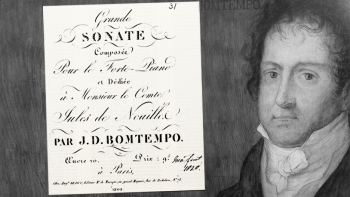 31
BOMTEMPO.
Grande
SONATE
Composée
Pour le Forte-Piano
et Dédiée
à Monsieur le Comte
Jules de Nouilles
PAR J.D. BOMTEMPO.
Œuvre Prix: 9f
à Paris,